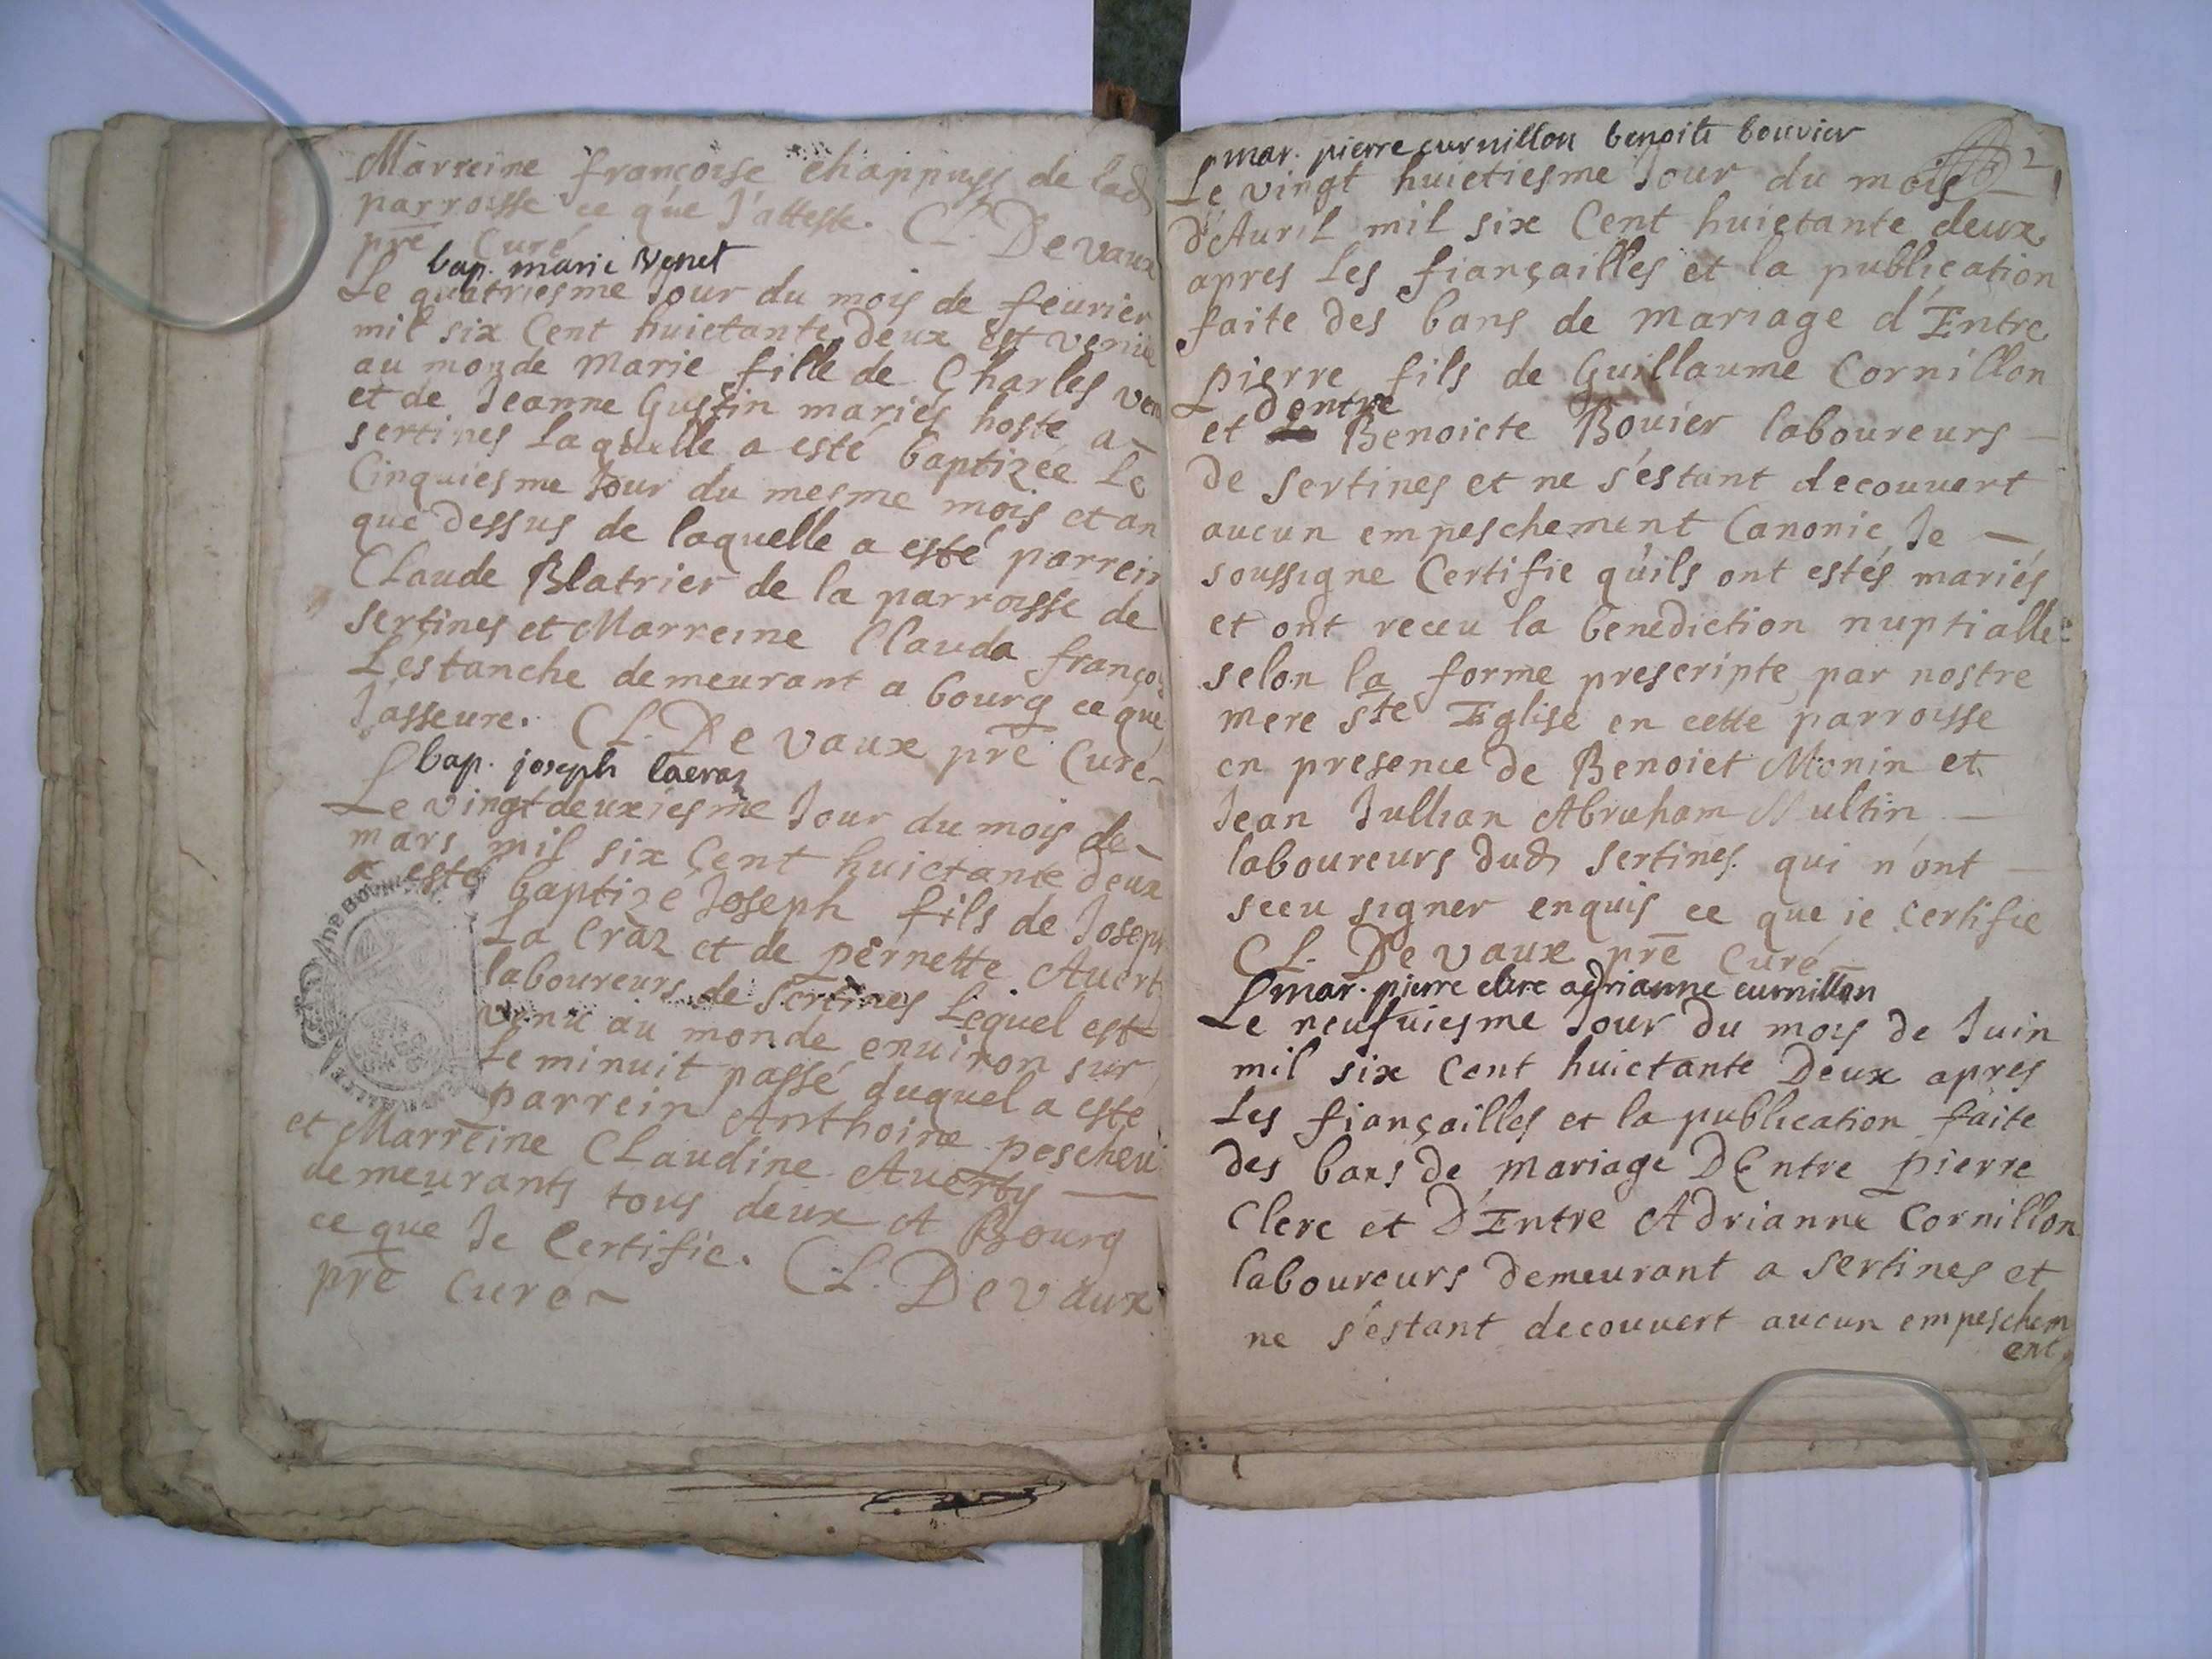 Marreine françoise Chappuys de lad
parroisse ce que J'atteste. CL. Devaux
pre Curé
bap. marie Venet
Le quatriesme Jour du mois de feurier
mil six Cent huictante deux est venüe
au monde Marie fille de Charles ven
et de Jeanne Gustin mariés hoste a
sertines laquelle a esté baptizée Le
Cinquiesme Jour du mesme mois et an
que dessus de laquelle a esté parrein
CLaude Blatrier de la parroisse de
sertines et Marreine Clauda franço
L'estanche demeurant a bourg ce que
J'asseure. CL. Devaux pre Curé
bap. joseph lacraz
Le vingtdeuxiesme Jour du mois de
mars mil six Cent huictante deux
a esté baptizé Joseph fils de Joseph
La Craz et de pernette Auert
laboureurs de Sertines Lequel est
venu au monde enuiron sur
Le minuit passé duquel a esté
parrein Anthoine pescheu
et Marreine CLaudine Auerty
demeurants tous deux A Bourg
ce que Je Certifie. CL. Devaux
pre Curé
mar. pierre curnillon benoite bouvier
2
Le vingt huictiesme Jour du mois
d'Auril mil six Cent huictante deux
apres Les fiançailles et la publication
faite des bans de mariage d'Entre
pierre fils de Guillaume Cornillon
dentre
et Benoicte Bouier laboureurs
de Sertines et ne s'estant decouuert
aucun empeschement Canonic Je
soussigne Certifie qu'ils ont estés mariés
et ont receu la benediction nuptialle
selon la forme prescripte par nostre
mere ste Eglise en cette parroisse
en presence de Benoict Monin et
Jean Jullian Abraham Multin
laboureurs dud Sertines qui n'ont
sceu signer enquis ce que ie certifie
CL. Devaux pre Curé
mar. pierre clerc adrianne curnillon
Le neufuiesme Jour du mois de Juin
mil six Cent huictante Deux apres
Les fiançailles et la publication faite
des bans de mariage DEntre pierre
Clerc et D'Entre Adrianne Cornillon
laboureurs demeurant a Sertines et
ne s'estant decouuert aucun empeschem
ent